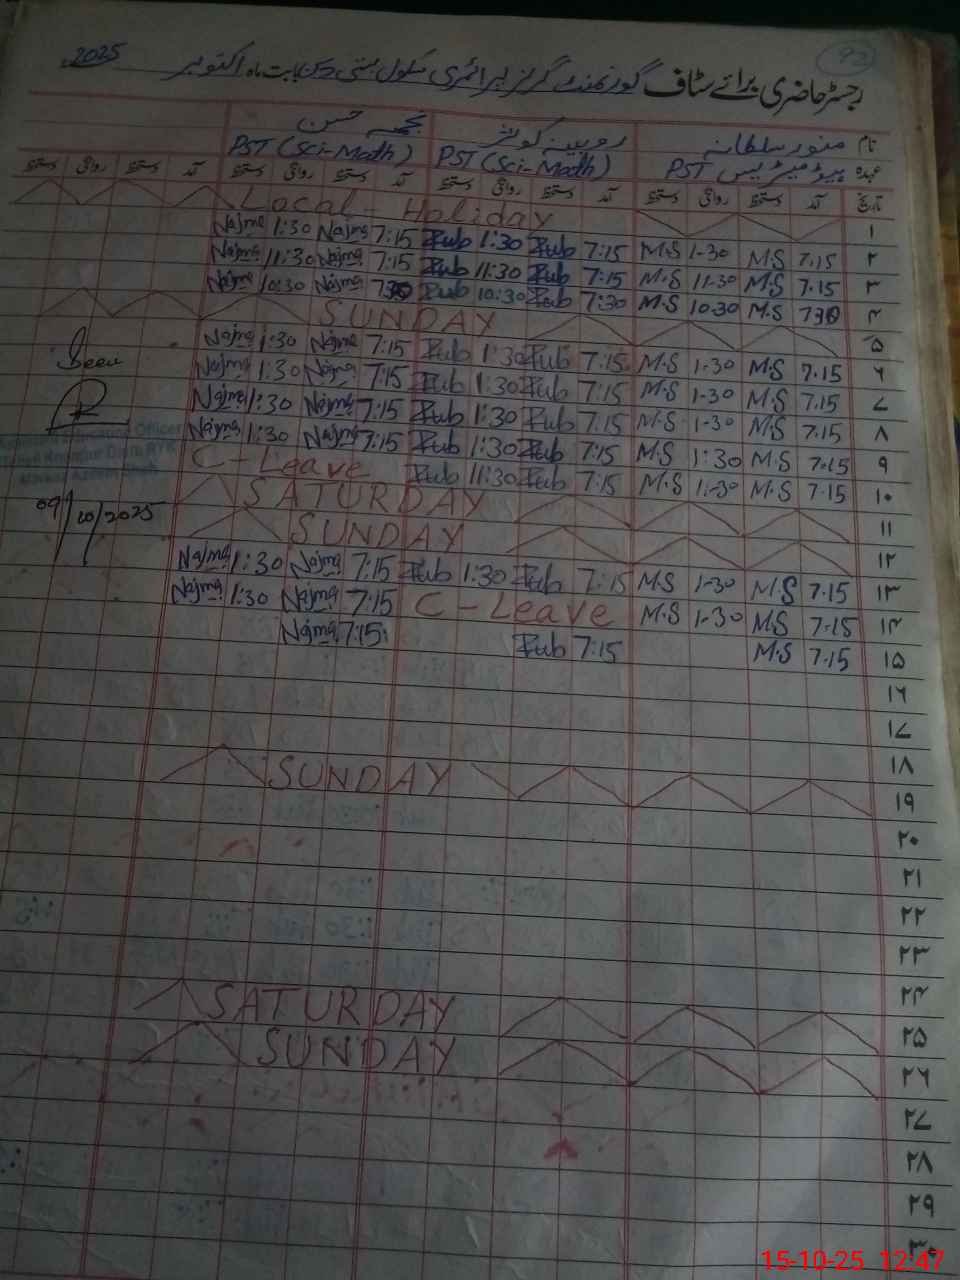 92
رجسٹر حاضری برائے سٹاف گورنمنٹ گرلز پرائمری سکول بستی بابت ماہ اکتوبر 2025
نام منور سلطانہ روبینہ کوثر نجمہ حسن
عہدہ ہیڈ مسٹریس PST PST (Sci-Math) PST (Sci-Math)
تاریخ آمد دستخط روانگی دستخط آمد دستخط روانگی دستخط آمد دستخط روانگی دستخط آمد دستخط روانگی دستخط
۱ Local - Holiday
۲ 7.15 M.S 1-30 M.S 7:15 Rub 1:30 Rub 7:15 Najma 1:30 Najma
۳ 7.15 M.S 11-30 M.S 7:15 Rub 11:30 Rub 7:15 Najma 11:30 Najma
۴ 730 M.S 10-30 M.S 7:30 Rub 10:30 Rub 730 Najma 10:30 Najma
۵ SUNDAY
۶ 7.15 M.S 1-30 M.S 7:15 Rub 1:30 Rub 7:15 Najma 1:30 Najma
۷ 7.15 M.S 1-30 M.S 7:15 Rub 1:30 Rub 7:15 Najma 1:30 Najma
۸ 7.15 M.S 1-30 M.S 7:15 Rub 1:30 Rub 7:15 Najma 1:30 Najma
۹ 7.15 M.S 1:30 M.S 7:15 Rub 1:30 Rub 7:15 Najma 1:30 Najma
۱۰ 7.15 M.S M.S 7:15 Rub 11:30 Rub C-Leave
۱۱ SATURDAY
۱۲ SUNDAY
۱۳ 7.15 M.S 1-30 M.S 7:15 Rub 1:30 Rub 7:15 Najma 1:30 Najma
۱۴ 7.15 M.S 1-30 M.S C-Leave 7:15 Najma 1:30 Najma
۱۵ 7.15 M.S 7:15 Rub 7:15 Najma
۱۶
۱۷
۱۸
۱۹ SUNDAY
۲۰
۲۱
۲۲
۲۳
۲۴
۲۵ SATURDAY
۲۶ SUNDAY
۲۷
۲۸
۲۹
۳۰
Seen
Officer
09/10/2025
15-10-25 12:47